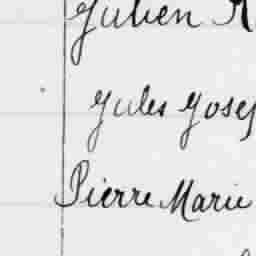 Julien
Jules Josep
Pierre Marie